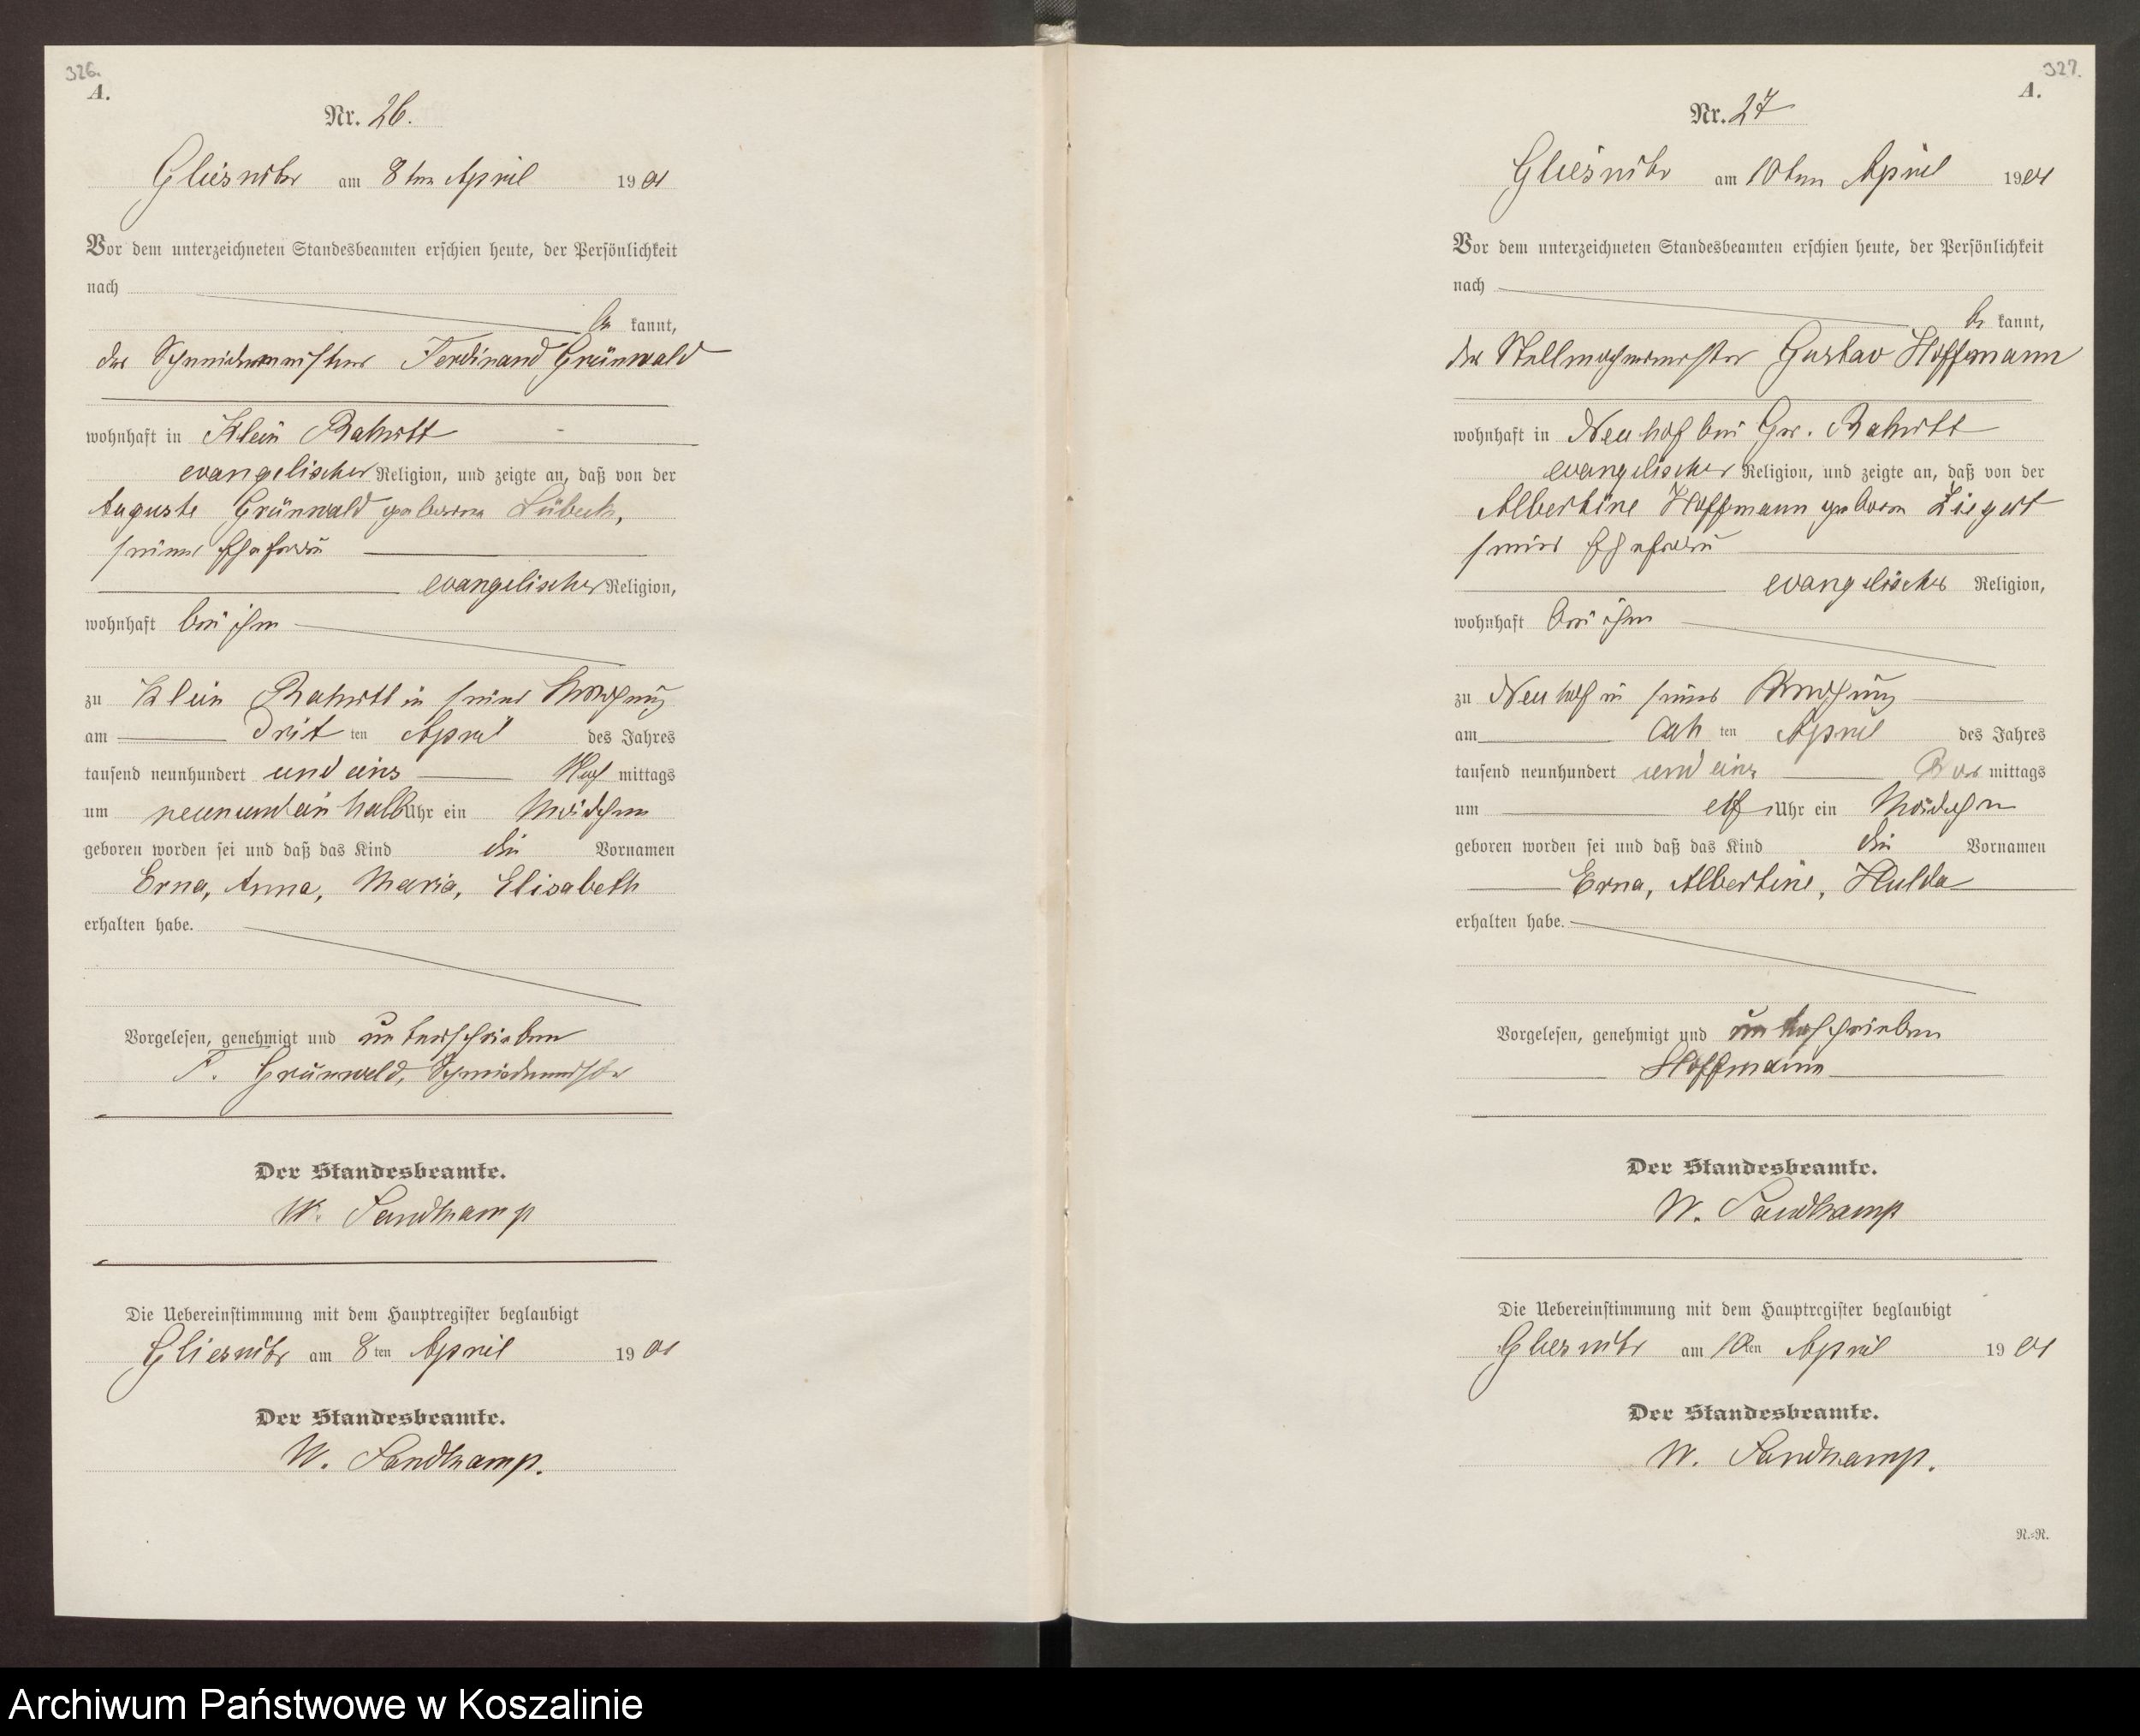 326.
A.
Nr. 26.
Gliesnitz am 8ten April 1901
Vor dem unterzeichneten Standesbeamten erschien heute, der Persönlichkeit
nach
be kannt,
der Schneidermeister Ferdinand Grünwald
wohnhaft in Klein Rakitt
evangelischer Religion, und zeigte an, daß von der
Auguste Grünwald geborene Lübeck,
seiner Ehefrau
evangelischer Religion,
wohnhaft bei ihm
zu Klein Rakitt in seiner Wohnung
am Drit ten April des Jahres
tausend neunhundert und eins Nach mittags
um neun und ein halb Uhr ein Mädchen
geboren worden sei und daß das Kind die Vornamen
Erna, Anna, Maria, Elisabeth
erhalten habe.
Vorgelesen, genehmigt und unterschrieben
F. Grünwald, Schneidermstr
Der Standesbeamte.
W. Sandkamp
Die Uebereinstimmung mit dem Hauptregister beglaubigt
Gliesnitz am 8ten April 1901
Der Standesbeamte.
W. Sandkamp.
327.
A.
Nr. 27
Gliesnitz am 10ten April 1901
Vor dem unterzeichneten Standesbeamten erschien heute, der Persönlichkeit
nach
be kannt,
der Stellmachermeister Gustav Hoffmann
wohnhaft in Neuhof bei Gr. Rakitt
evangelischer Religion, und zeigte an, daß von der
Albertine Hoffmann geboren Liegert
seiner Ehefrau
evangelischer Religion,
wohnhaft bei ihm
zu Neuhof in seiner Wohnung
am Ach ten April des Jahres
tausend neunhundert und eins Vor mittags
um elf Uhr ein Mädchen
geboren worden sei und daß das Kind die Vornamen
Erna, Albertine, Hulda
erhalten habe.
Vorgelesen, genehmigt und unterschrieben
Hoffmann
Der Standesbeamte.
W. Sandkamp
Die Uebereinstimmung mit dem Hauptregister beglaubigt
Gliesnitz am 10ten April 1901
Der Standesbeamte.
W. Sandkamp.
R.=R.
Archiwum Państwowe w Koszalinie